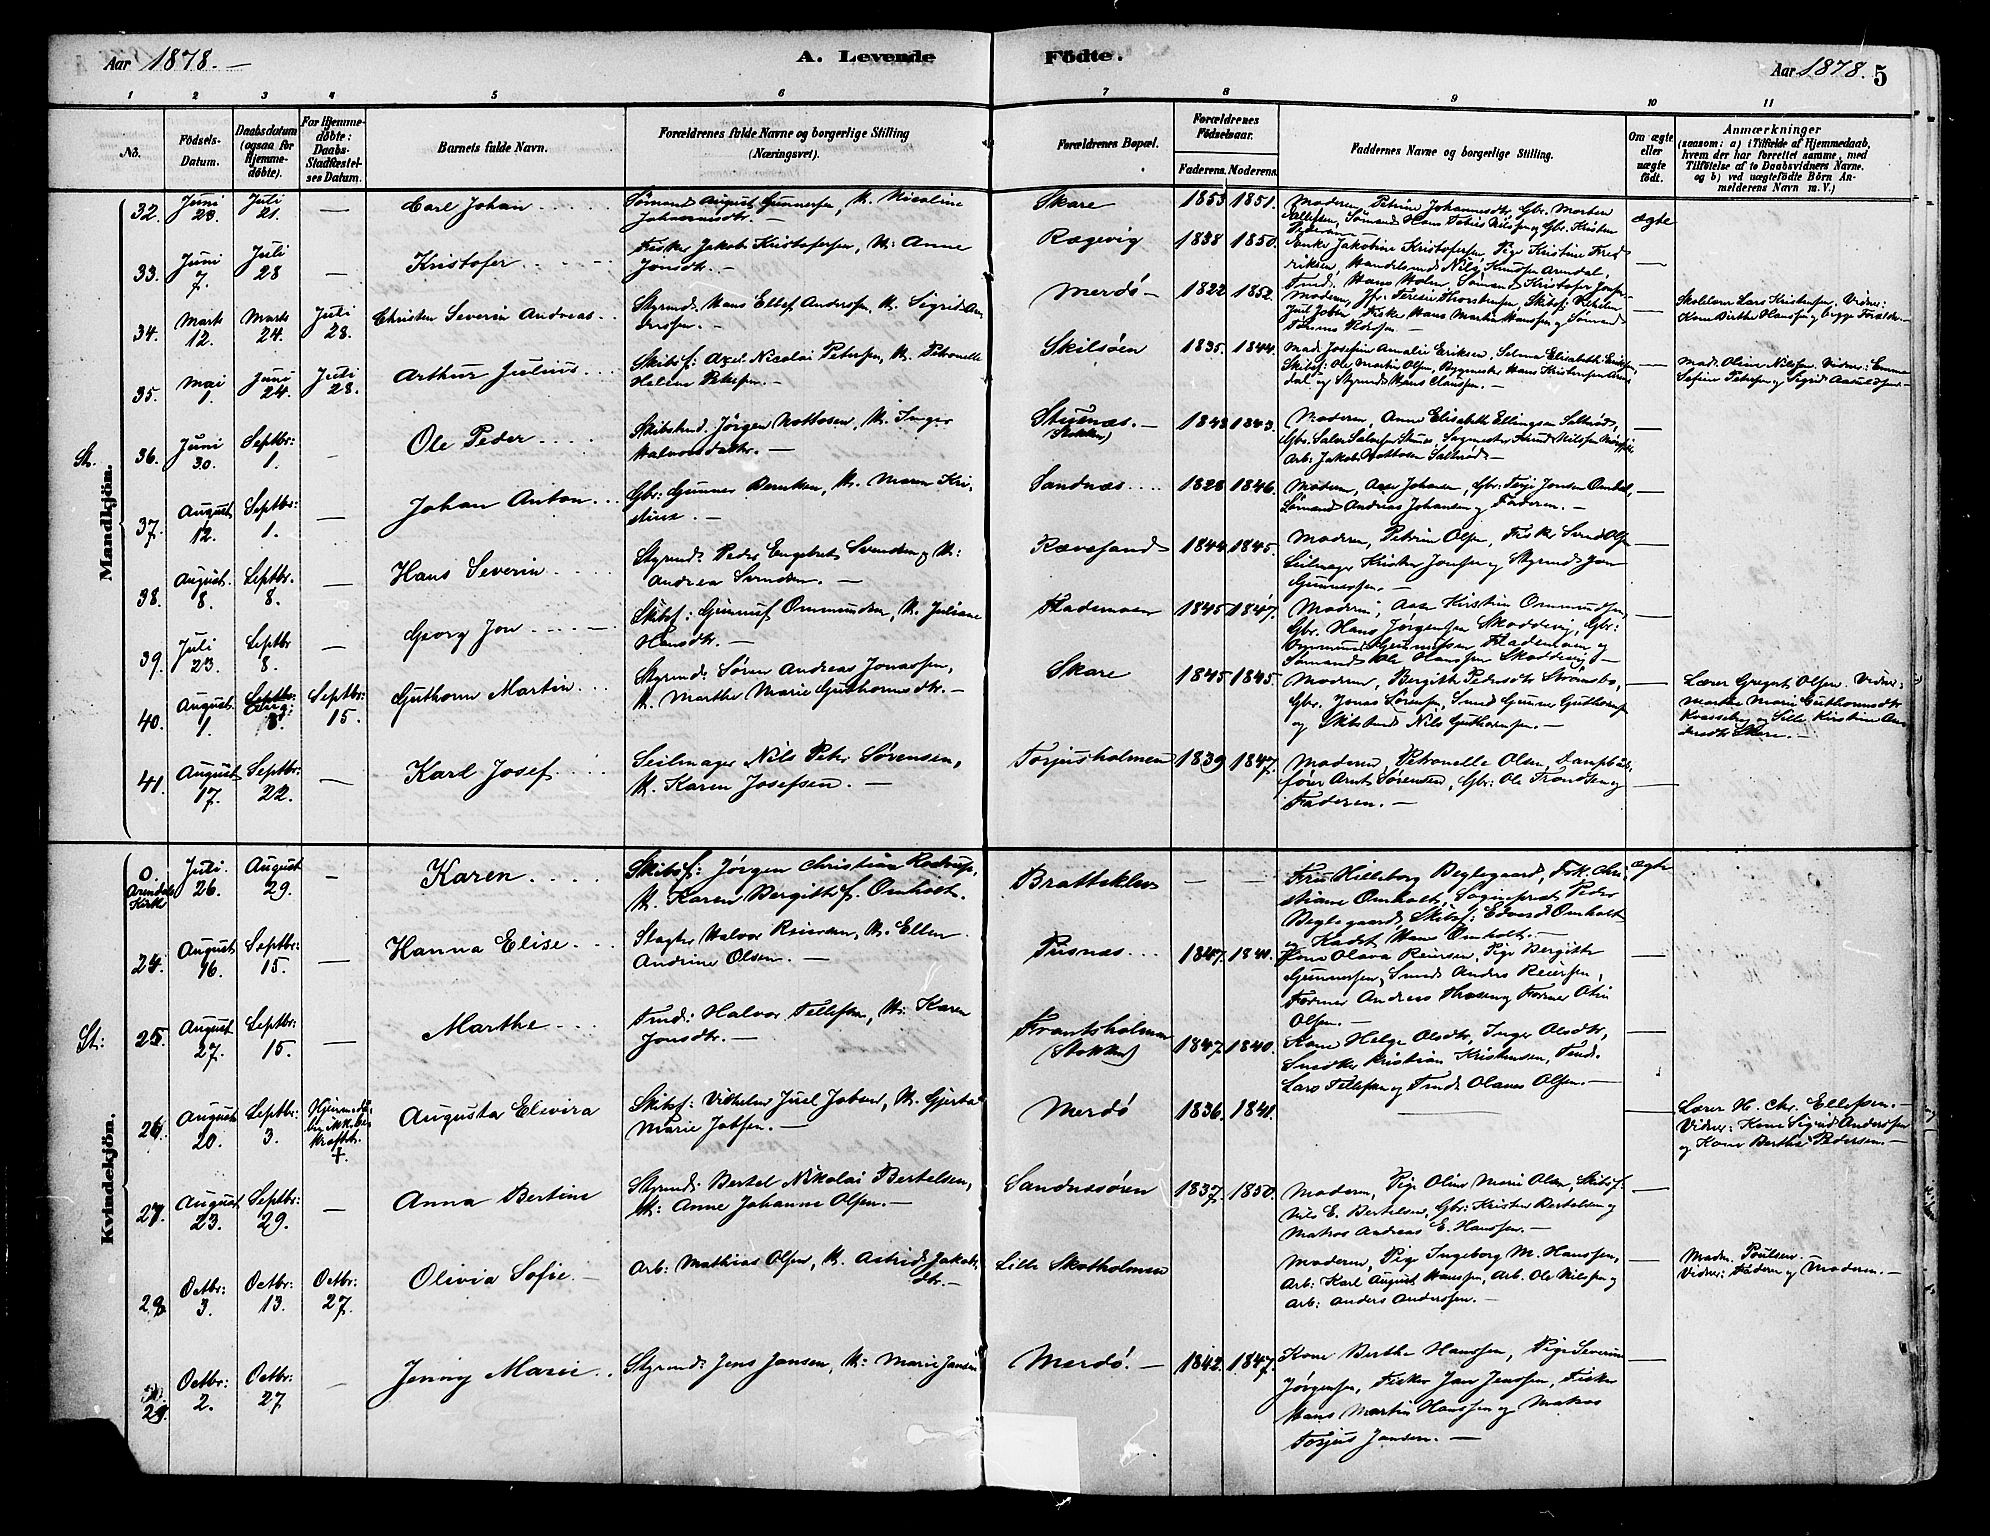 Aar 1878. —
A. Levende
Födte.
Aar 1878. 5
1 2 3 4 5 6 7 8 9 10 11
No.
Födsels-
Datum.
Daabsdatum
(ogsaa for
Hjemme-
döbte).
For Hjemme-
döbte:
Daabs-
Stadfæstel-
ses Datum.
Barnets fulde Navn.
Forældrenes fulde Navne og borgerlige Stilling
(Næringsvei).
Forældrenes Bopæl.
Forældrenes
Födselsaar.
Faderens. Moderens.
Faddernes Navne og borgerlige Stilling.
Om ægte
eller
uægte
födt.
Anmærkninger
(saasom: a) i Tilfælde af Hjemmedaab,
hvem der har forrettet samme, med
Tilföielse af to Daabsvidners Navne,
og b) ved uægtefödte Börn An-
melderens Navn m. V.)
St.
Mandkjön.
32. Juni 23. Juli 21. — Carl Johan
Sømand August Gunnersen, H. Nicoline
Johannesdtr. —
Skare 1853 1851.
Moderen, Petrine Johannesdtr, Gbr. Morten
Tellefsen, Sømand Hans Tobias Nilsen og Gbr. Kristen
ægte
33. Juni 7. Juli 28 — Kristofer
Fisker Jakob Kristofersen, H: Anne
Jonsdtr. —
Rægevig 1838 1850.
Enke Jakobine Kristofersen, Pige Kristine Fred-
riksen, Handelsmd Nils Knudsen Arendal,
—
34. Marts 12. Marts 24. Juli 28. Christen Severin Andreas
Styrmd. Hans Ellef Andersen, H. Sigrid An-
dersen. —
Merdö — 1822 1852.
Moderen, Gfr. Terese Thorstensen, Skibsf: Vilhelm
Juel Jebsen, Fisker Hans Martin Hanssen og Sømand
—
Skolelærer Lars Kristensen, Vidner:
Kone Berthe Hanssen og begge Foræld. —
35. Mai 1. Juni 24. Juli 28. Arthur Julius
Skibsf: Axel Nicolai Petersen, H. Petronelle
Helene Petersen. —
Skilsöen 1835. 1844.
Mad. Josefine Amalie Eriksen, Selma Elisabeth Eriksen,
Skibsf: Ole Martin Olsen, Bygmester Hans Kristensen Aren-
dal og Styrmd Hans Claussen. —
—
Mad. Oline Nilsen. Vidner: Emma
Sefine Petersen og Sigrid Aanuldsen. —
36. Juni 30. Septbr: 1. — Ole Peder
Skibstmd. Jörgen Nottosen, H. Inger
Halvorsdatter. —
Stuenæs. —
(Stokken)
1848 1843.
Moderen, Anne Elisabeth Ellingsen Saltröd,
Gbr. Salve Salvesen Stunes, Sagmester Knud Nilsen
Arb: Jakob Nottosen Saltröd —
—
37. August 12. Septbr: 1. — Johan Anton
Gbr: Gunner Berntsen, H. Maren Kri-
stine. —
Sandnæs 1828 1846.
Moderen, Aase Johansen, Gbr: Terje Jensen Omdal,
Sømand Andreas Johansen og Faderen. —
—
38. August 8. Septbr. 8. — Hans Severin
Styrmd: Peder Engebret Svendsen og H:
Andrea Svendsen. —
Rævesand 1844 1845.
Moderen, Petrine Olsen, Fisker Svend Olsen
Seilmager Kristen Jonsen og Styrmd Jon
Gunnersen. —
—
39. Juli 23. Septbr 8. — Georg Jon
Skibsf: Gunnuf Ommundsen, H. Juliane
Hansdtr. —
Flademoen 1845 1847.
Moderen, Aase Kirstine Ommundsen,
Gbr. Hans Jørgensen Skoddevig, Gbr:
Ommund Gunnufsen Flademoen og
Sømand Ole Hanssen Skoddevig —
—
40. August 1. Septbr: 8. Septbr: 15. Guthorm Martin
Styrmd: Sören Andreas Jonassen,
H. Marthe Marie Guthormsdtr. —
Skare 1845 1845.
Moderen, Bergith Pedersdtr Strömsbo,
Gbr. Jonas Sörensen, Smed Gunner Guthormsen
og Skibstmd Nils Guthormsen. —
—
Lærer Gregert Olsen. Vidner:
Marthe Marie Guthormsdtr
41. August 17. Septbr: 22. — Karl Josef
Seilmager Nils Peter Sørensen,
H. Karen Josefsen. —
Torjusholmen 1839 1847.
Moderen, Petronelle Olsen, Dampbåd-
fører Arnt Sørensen, Gbr: Ole Trondsen og
Faderen. —
—
St:
Kvindekjön.
0. Arendals Kirke Juli 26. August 29. — Karen
Skibsf: Jörgen Christian Rostrup,
H. Karen Bergitte f. Omholt.
Bratteklev — —
Fru Hilleborg Beglegaard, Frk. Chri-
stiane Omholt, Sogneprest Peder
Beglegaard, Skibsf: Edvard Omholt
og Kadet Hans Omholt. —
ægte
24. August 16. Septbr: 15. — Hanna Elise
Slagter Halvor Reiersen, H. Ellen
Andrine Olsen. —
Pusnæs 1847. 1840.
Kone Olava Reiersen, Pige Bergitte
Gunnersen, Smed Anders Reiersen,
Former Andreas Thosen og Former Olin
Olsen. —
—
25. August 27. Septbr: 15. — Marthe
Tmd: Halvor Tellefsen, H: Karen
Jonsdtr. —
Frantsholmen
(Stokken)
1847. 1840.
Kone Helge Olsdtr, Inger Olsdtr,
Snedker Kristian Kristensen, Tmd.
Lars Tellefsen og Tmd: Olaves Olsen. —
—
26. August 20. Septbr: 3. Hjemmedåb
ikke be-
kræftet.
†
Augusta Elevira
Skibsf: Vilhelm Juel Jebsen, H. Gjerta
Marie Jebsen. —
Merdö 1836. 1841.
—
Lærer H. Chr. Ellefsen. —
Vidner: Kone Sigrid Andersen
og Kone Berthe Pedersen. —
27. August 23. Septbr: 29. — Anna Bertine
Styrmd: Bertel Nikolai Bertelsen,
H: Anne Johanne Olsen. —
Sandnæsören 1837. 1850.
Moderen, Pige Oline Marie Olsen, Skibsf.
Nils E. Bertelsen, Gbr: Kristen Bertelsen og
Matros Andreas E. Hanssen. —
—
28. Octbr: 3. Octbr: 13. Octbr: 27. Olivia Sofie. —
Arb: Mathias Olsen, H. Astrid Jakobs-
dtr. —
Lille Skotholmen
Moderen, Pige Ingeborg M. Hanssen,
Arb: Karl August Hanssen, Arb. Ole Nilsen og
Arb: Anders Andersen. —
—
Madm. Poulsen.
Vidner: Faderen og Moderen. —
29. Octbr: 2. Octbr: 27 — Jenny Marie
Styrmd: Jens Jansen, H: Marie Jansen
Merdö. — 1842. 1847.
Kone Berthe Hanssen, Pige Severine
Jørgensen, Fisker Jan Jenssen, Fisker
Hans Martin Hanssen og Matros
Torjus Jansen. —
—